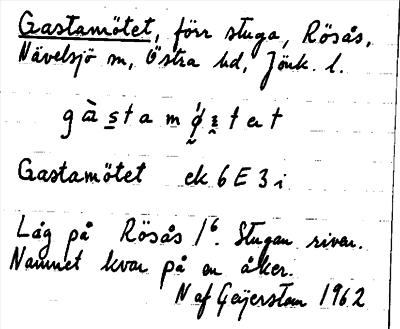 Gastamötet, förr stuga, Rösås,
Nävelsjö sn, Östra hd, Jönk. l.
Gastamötet ek 6E3i
Låg på Rösås 1⁶. Stugan riven.
Namnet kvar på en åker.
N af Geijerstam 1962